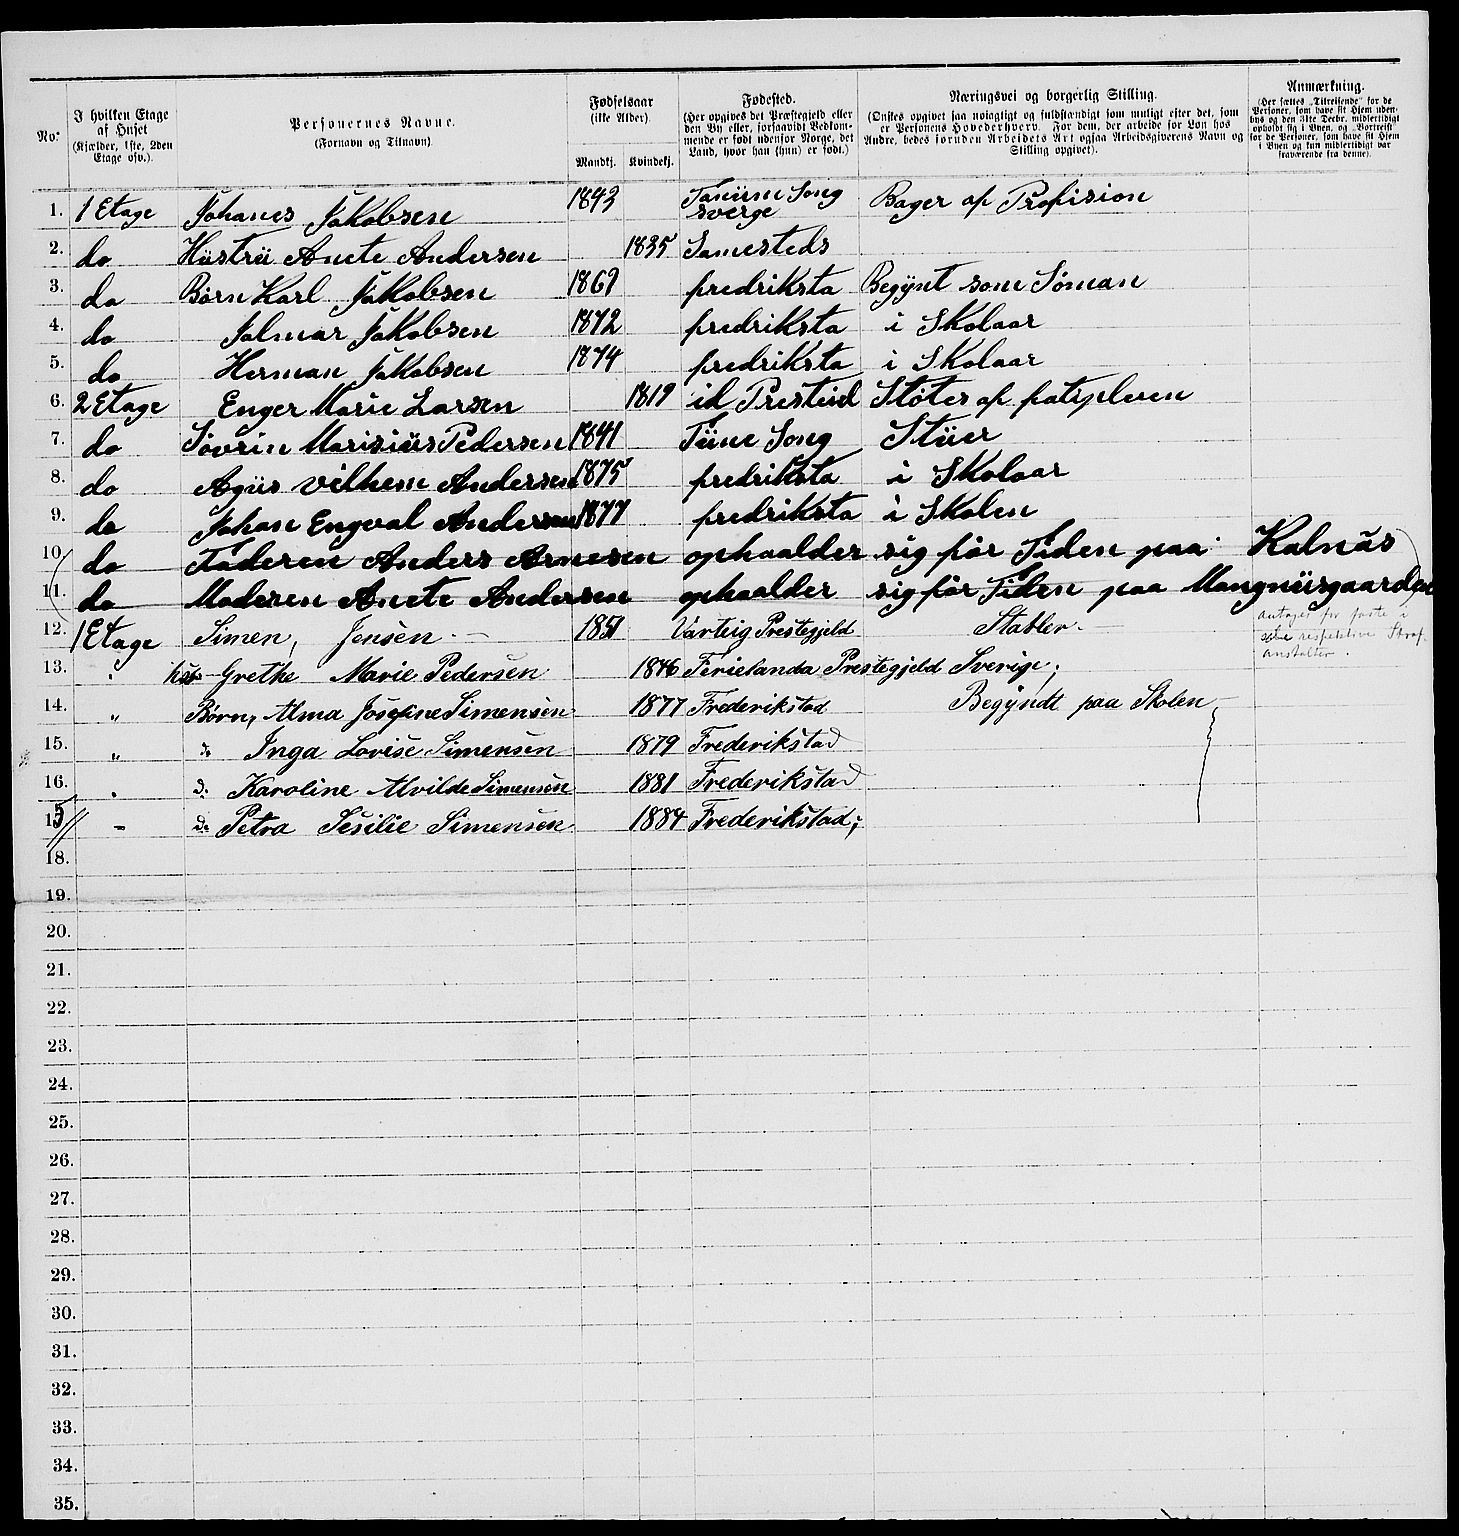 No.
I hvilken Etage
af Huset
(Kjælder, 1ste, 2den
Etage osv.).
Personernes Navne.
(Fornavn og Tilnavn)
Fødselsaar
(ikke Alder).
Mandkj. Kvindekj.
Fødested.
(Her opgives det Præstegjeld eller
den By eller, forsaavidt Vedkom-
mende er født udenfor Norge, det
Land, hvor han (hun) er født.)
Næringsvei og borgerlig Stilling.
(Ønskes opgivet saa nøiagtigt og fuldstændigt som muligt efter det, som
er Personens Hovederhverv. For dem, der arbeide for Løn hos
Andre, bedes foruden Arbeidets Art ogsaa Arbeidsgiverens Navn og
Stilling opgivet).
Anmærkning.
(Her sættes „Tilreisende" for de
Personer, som have sit Hjem uden-
bys og den 31te Decbr. midlertidigt
opholdt sig i Byen, og „Bortreist"
for de Personer, som have sit Hjem
i Byen og kun midlertidigt var
fraværende fra denne).
1. 1 Etage Johanes Jakobsen 1843 Tanüm Song sverge Bager af Profision
2. do Hüstrü Anete Andersen 1835 Samesteds
3. do Børn Karl Jakobsen 1869 fredriksta Begÿnt som Søman
4. do Jalmar Jakobsen 1872 fredriksta i Skolaar
5. do Herman Jakobsen 1874 fredriksta i Skolaar
6. 2 Etage Enger Marie Larsen 1819 id Presteid Støtes af fatipleven
7. do Søvrin Marisiüs Pedersen 1841 Tüne Song Stüer
8. do Agüs Vilhem Andersen 1875 fredriksta i Skolaar
9. do Johan Engval Andersen 1877 fredriksta i Skolen
10. do Faderen Anders Arnesen ophaalder sig før Tiden paa Kalnäs
11. do Moderen Anete Andersen ophaalder sig før Tiden paa Mangnüsgaarden
antages for første i
respektive Straf-
anstalter.
12. 1 Etage Simen, Jensen 1851 Varteig Prestegjeld Stabler
13. " Grethe Marie Pedersen 1846 Ferielanda Prestegjeld Sverige;
14. " Børn, Alma Josefine Simensen 1877 Frederikstad Begÿndt paa Skolen
15. " do Inga Lovise Simensen 1879 Frederikstad
16. " do Karoline Alvilde Simensen 1881 Frederikstad
17. " do Petra Sesilie Simensen 1884 Frederikstad;
5
18.
19.
20.
21.
22.
23.
24.
25.
26.
27.
28.
29.
30.
31.
32.
33.
34.
35.